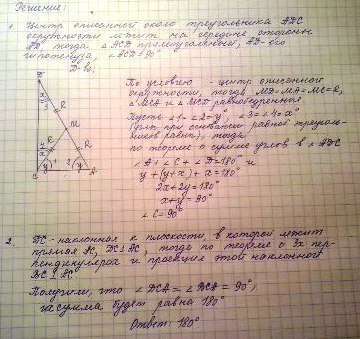 Решение:
1. Центр описанной около треугольника АВС
окружности лежит на середине стороны
АВ, тогда ∠АСВ прямоугольный, АВ- его
гипотенуза, ∠АСВ=90°
По условию - центр описанной
окружности, тогда МВ=МА=МС=R,
∠МСА и ∠МСВ равнобедренные
Пусть ∠1=∠2=y, ∠3=∠4=x°
(углы при основании равной треуголь-
ников равны), тогда
по теореме о сумме углов в ∠АВС
∠А+∠С+∠В=180° и
y+(y+x)+x=180°
2x+2y=180°
x+y=90°
∠С=90°
R
M
R
R
y
1
2
y
C
A
2. - наклонная к плоскости, в которой лежит
прямая АС, тогда по теореме о 3х пер-
пендикулярах и проекция этой наклонной
ВС⊥АС
Получили, что ∠DCA=∠BCA=90°,
их сумма будет равна 180°
Ответ: 180°